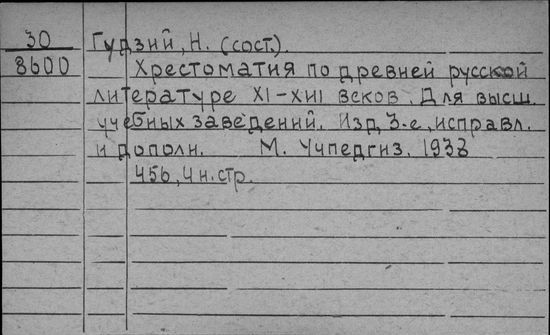 30 Гудзий, Н. (сост.).
8600 Хрестоматия по древней русской
литературе XI-XVII веков. Для высш.
учебных заведений. Изд. 3-е, исправл.
и дополн. М. Учпедгиз. 1938
456, 4 н. стр.